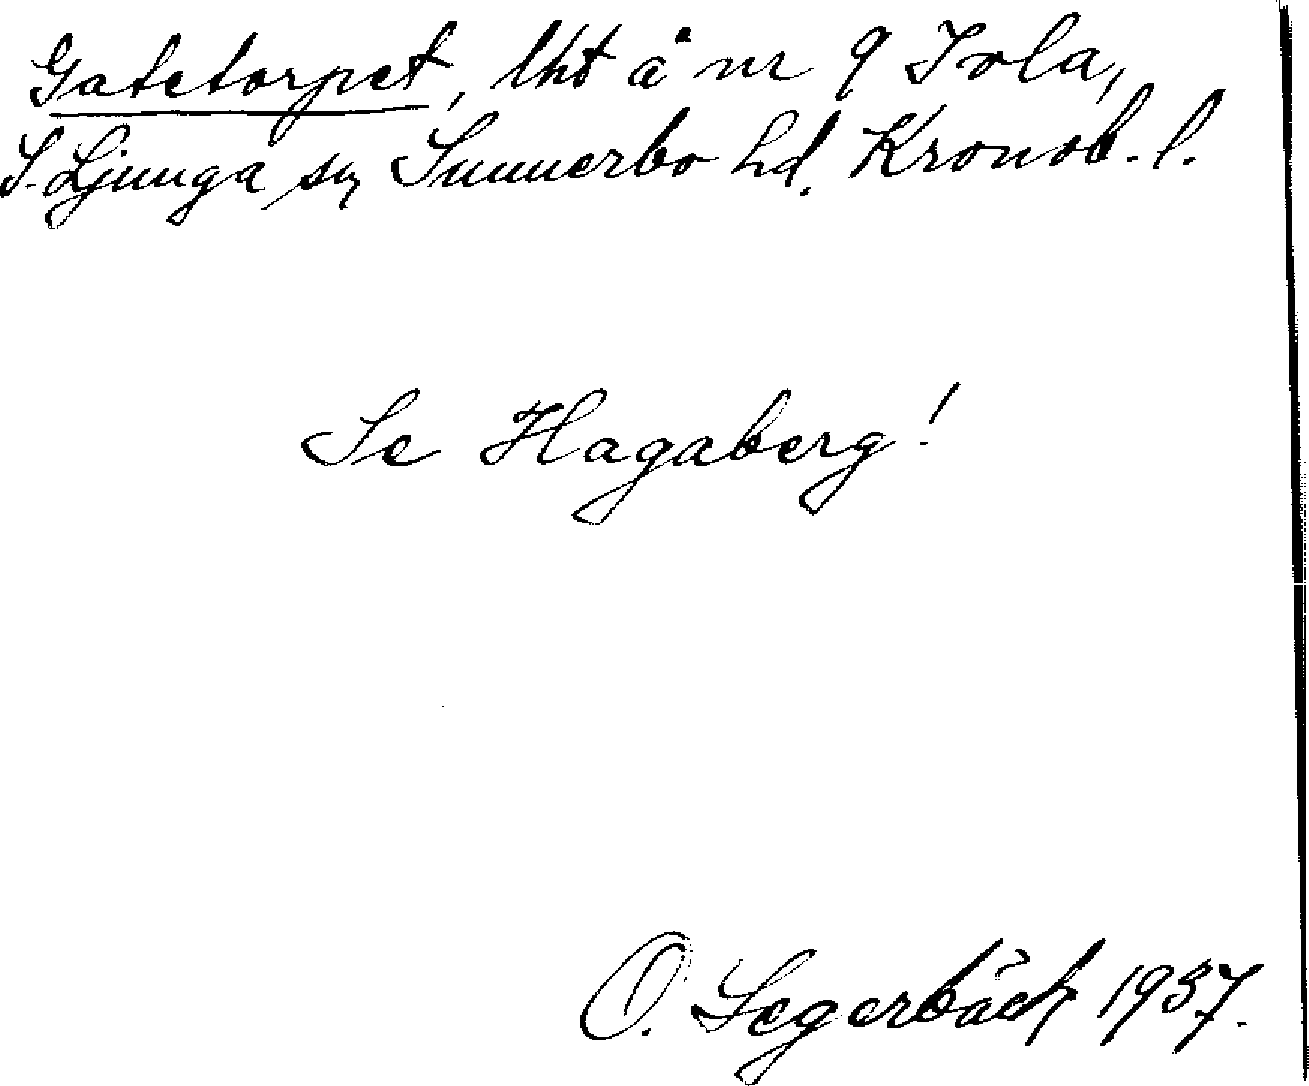 Gatetorpet, lht å nr 9 Tola,
S. Ljunga sn, Sunnerbo hd. Kronob. l.
Se Hagaberg!
O. Segerbäck 1937.